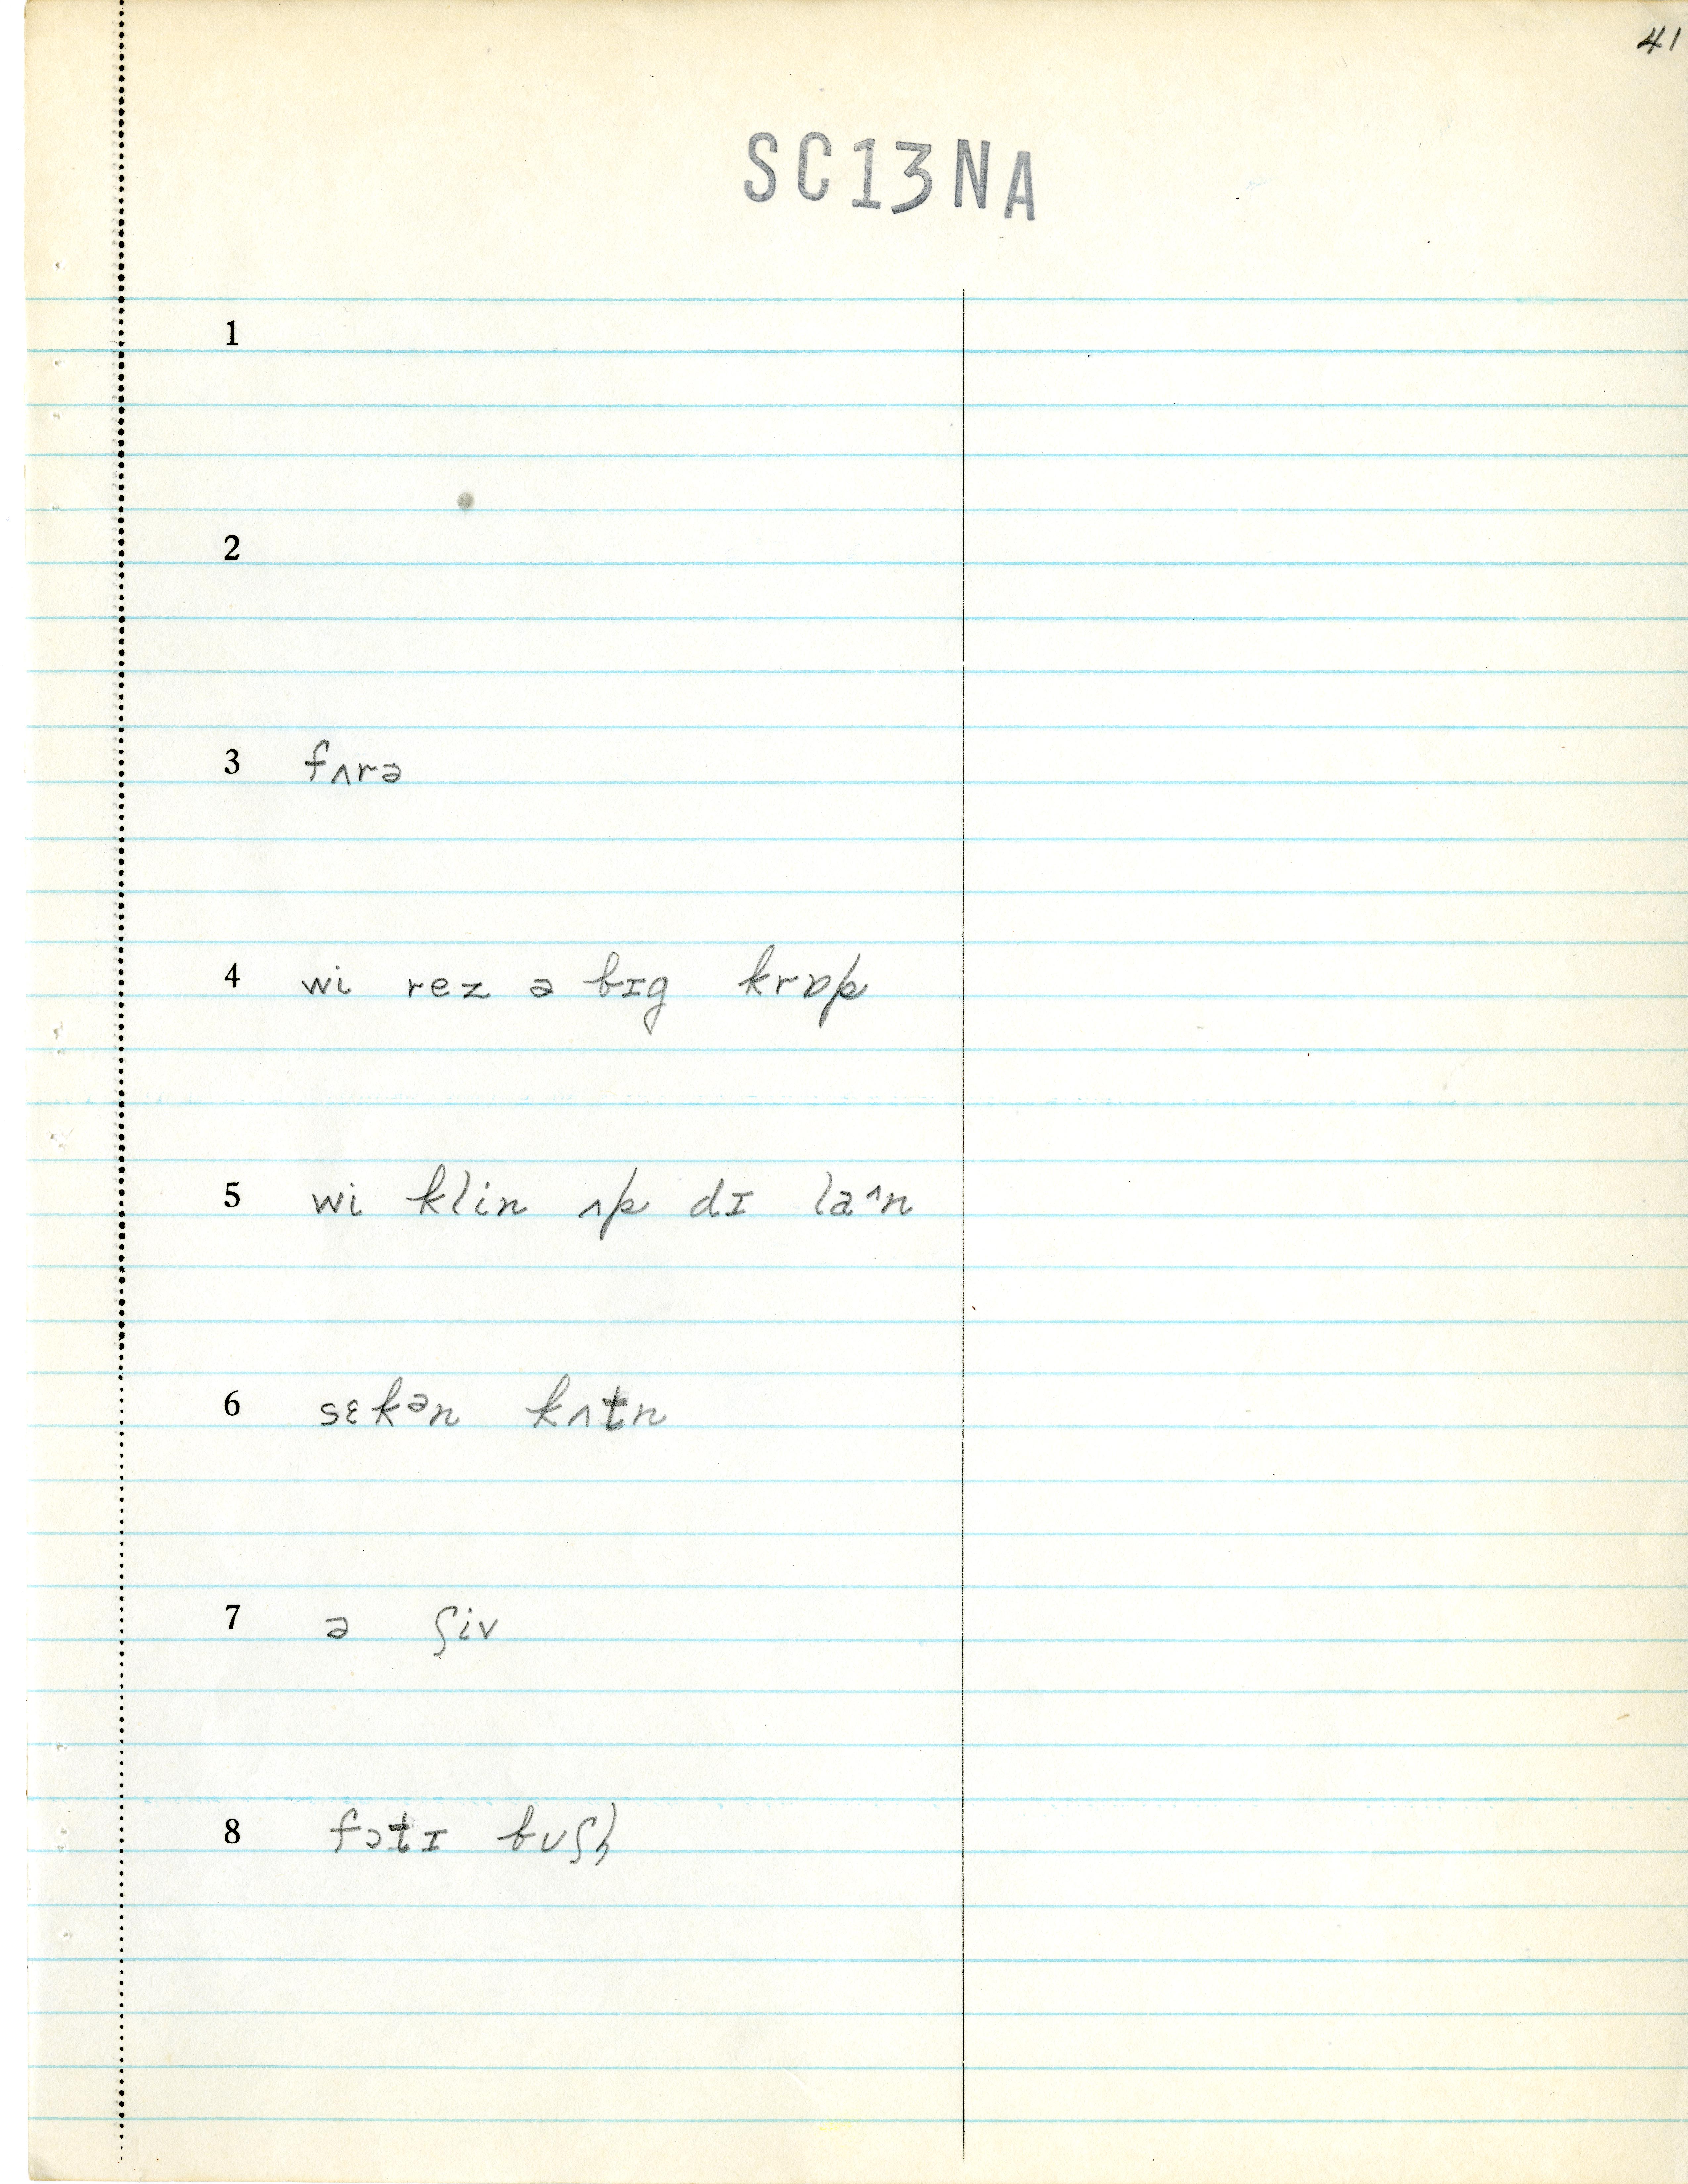 41
SC13NA
1
2
3 fʌrə
4 wi rez ə bɪg krɒp
5 wi klin ʌp dɪ laᶺn
6 sɛkᵊn kʌtn
7 ə ʃiv
8 fɔtɪ buʃļ